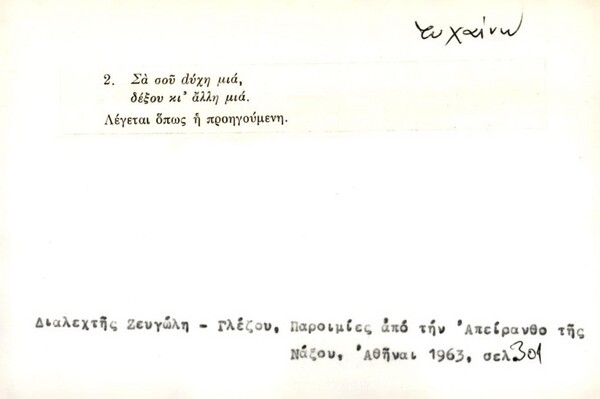 τυχαίνω
2. Σὰ σοῦ dύχη μιά,
δέξου κι' ἄλλη μιά.
Λέγεται ὅπως ἡ προηγούμενη.
Διαλεχτῆς Ζευγώλη - Γλέζου, Παροιμίες ἀπό τήν Ἀπείρανθο τῆς
Νάξου, Ἀθῆναι 1963, σελ 301